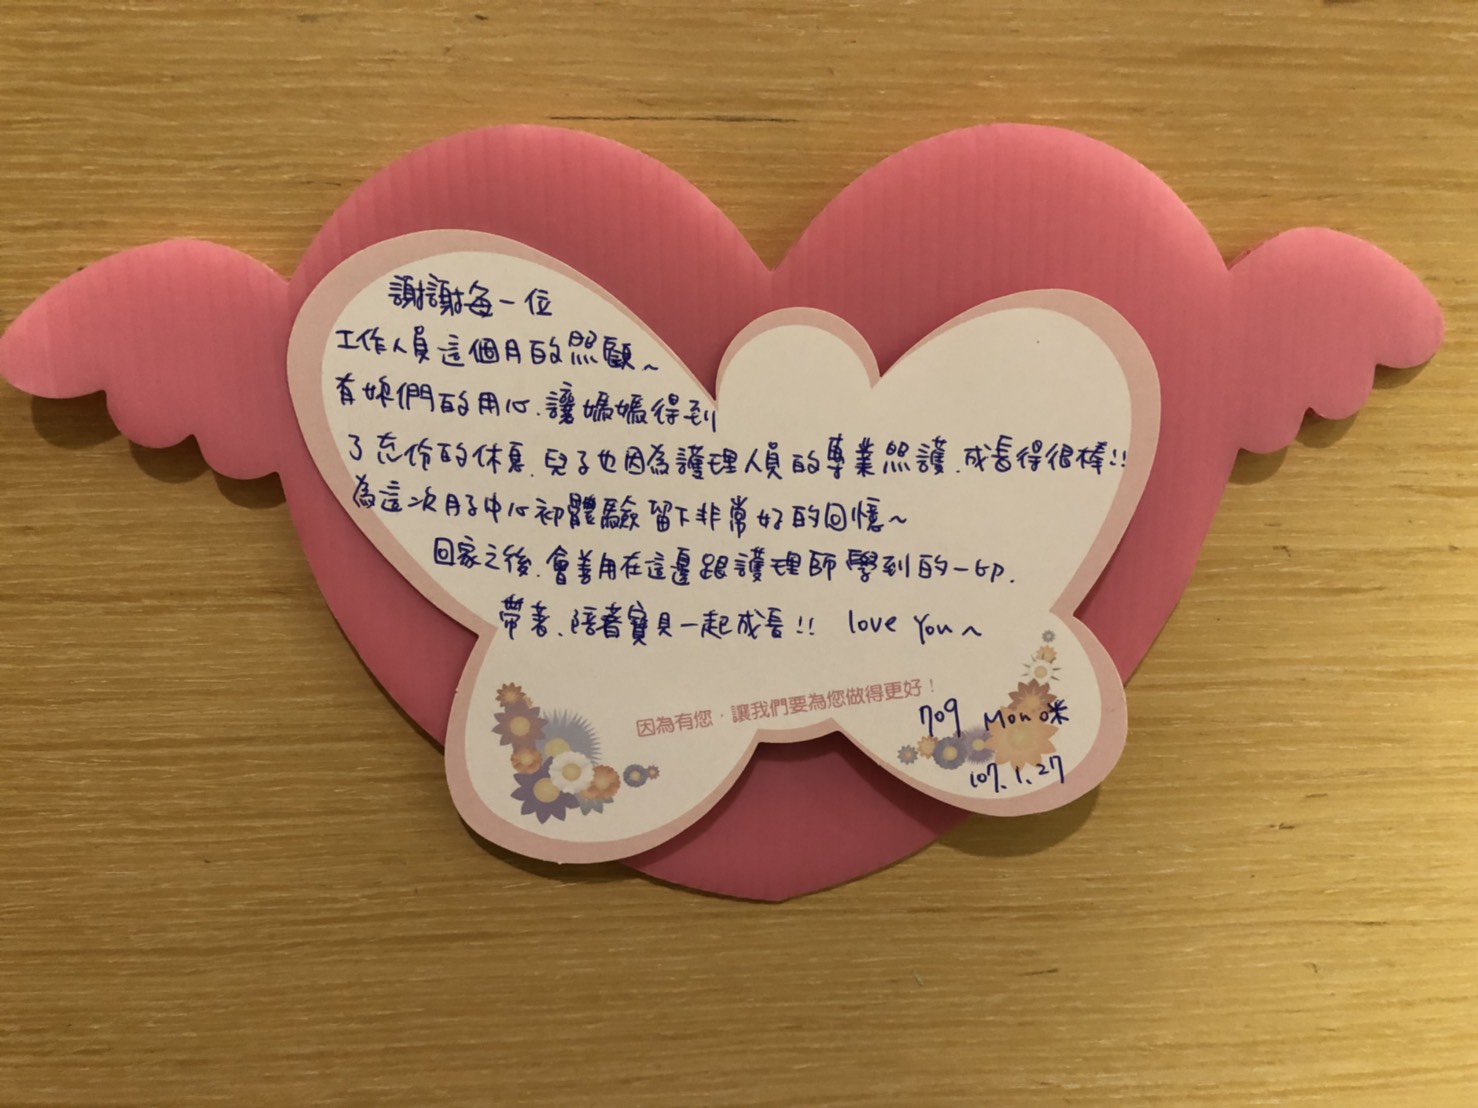 謝謝每一位
工作人員這個月的照顧~
有妳們的用心、讓媽媽得到
了充份的休息、兒子也因為護理人員的專業照護、成長得很棒!!
為這次月子中心初體驗留下非常好的回憶~
回家之後、會善用在這邊跟護理師學到的一切、
帶著、陪著寶貝一起成長!! love You~
因為有您，讓我們要為您做得更好！
709 Mono米
107.1.27